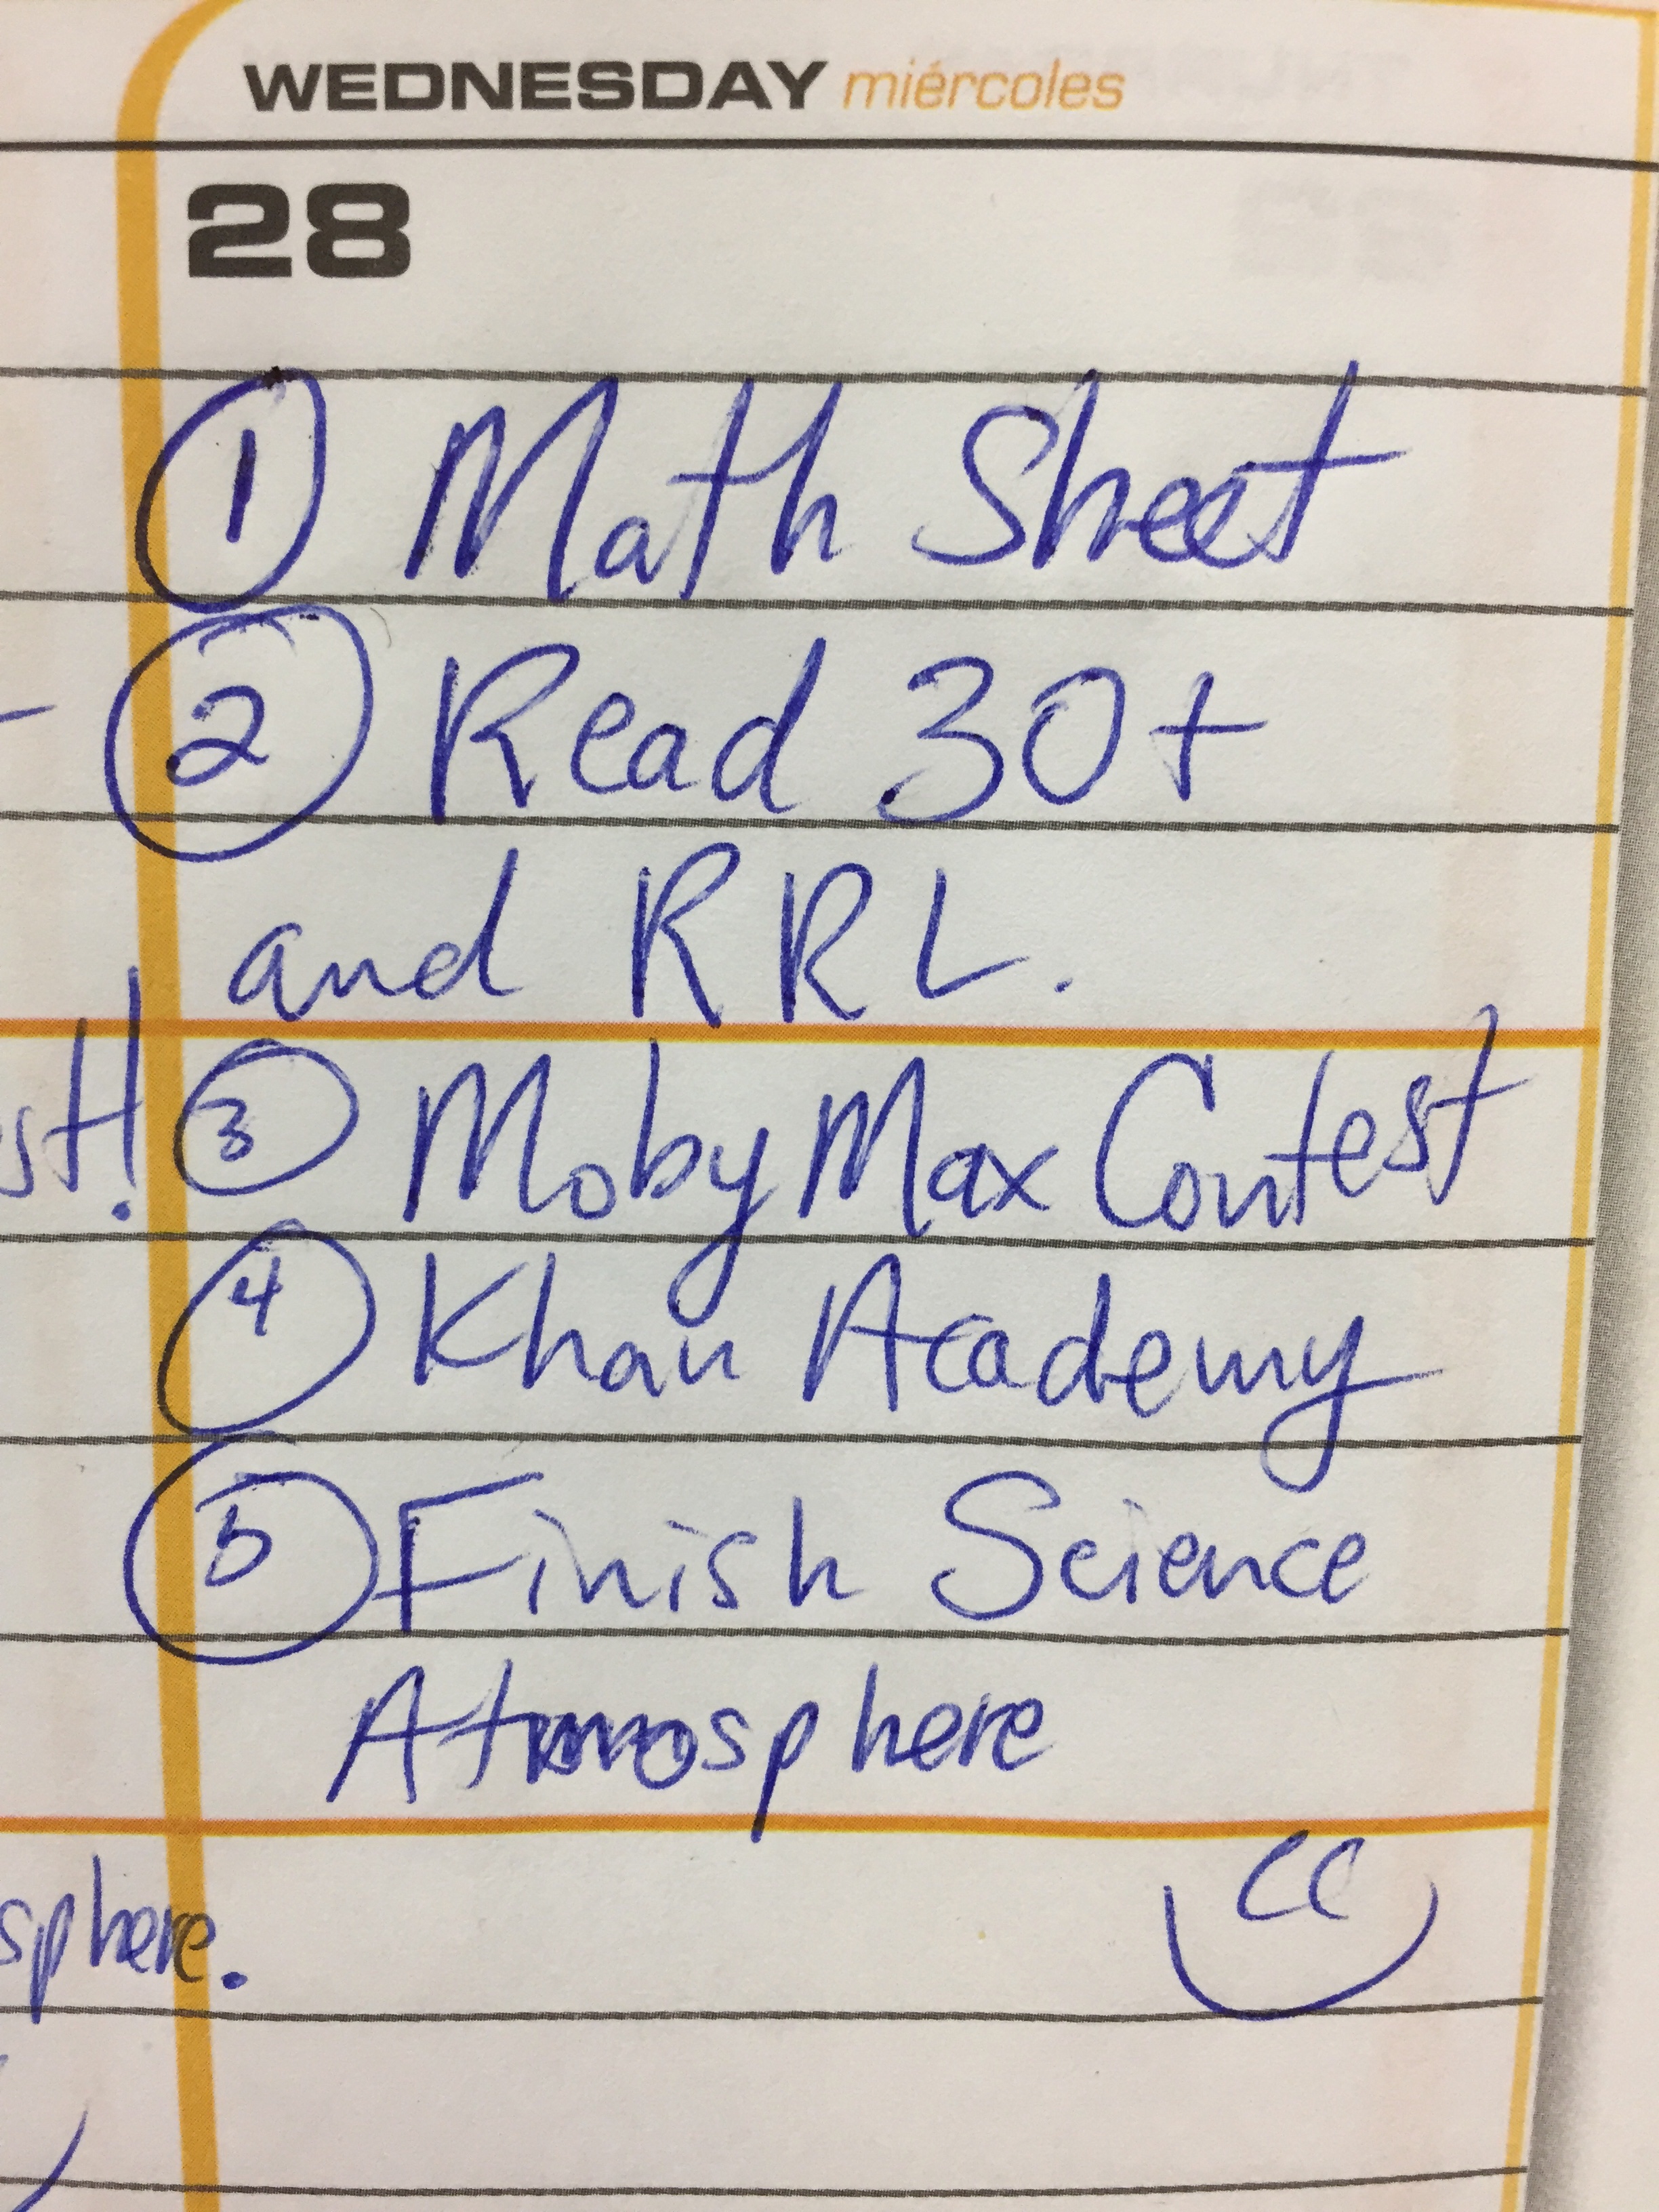 WEDNESDAY miércoles
28
① Math Sheet
② Read 30+
and RRL.
st! ③ Moby Max Contest
④ Khan Academy
⑤ Finish Science
Atmosphere
sphere.